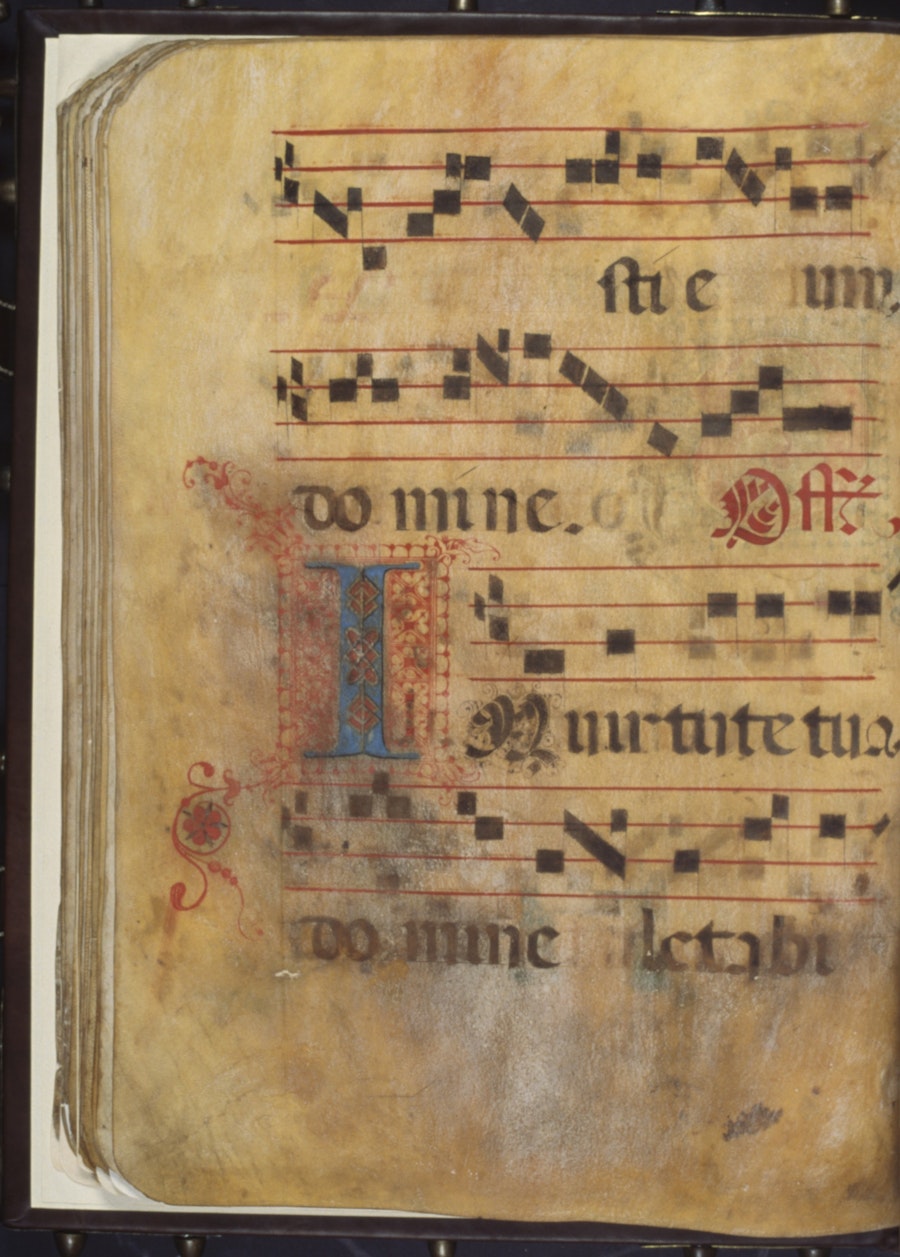 sti e um,
do mi ne. Off.
IN uirtute tua
do mine letabi